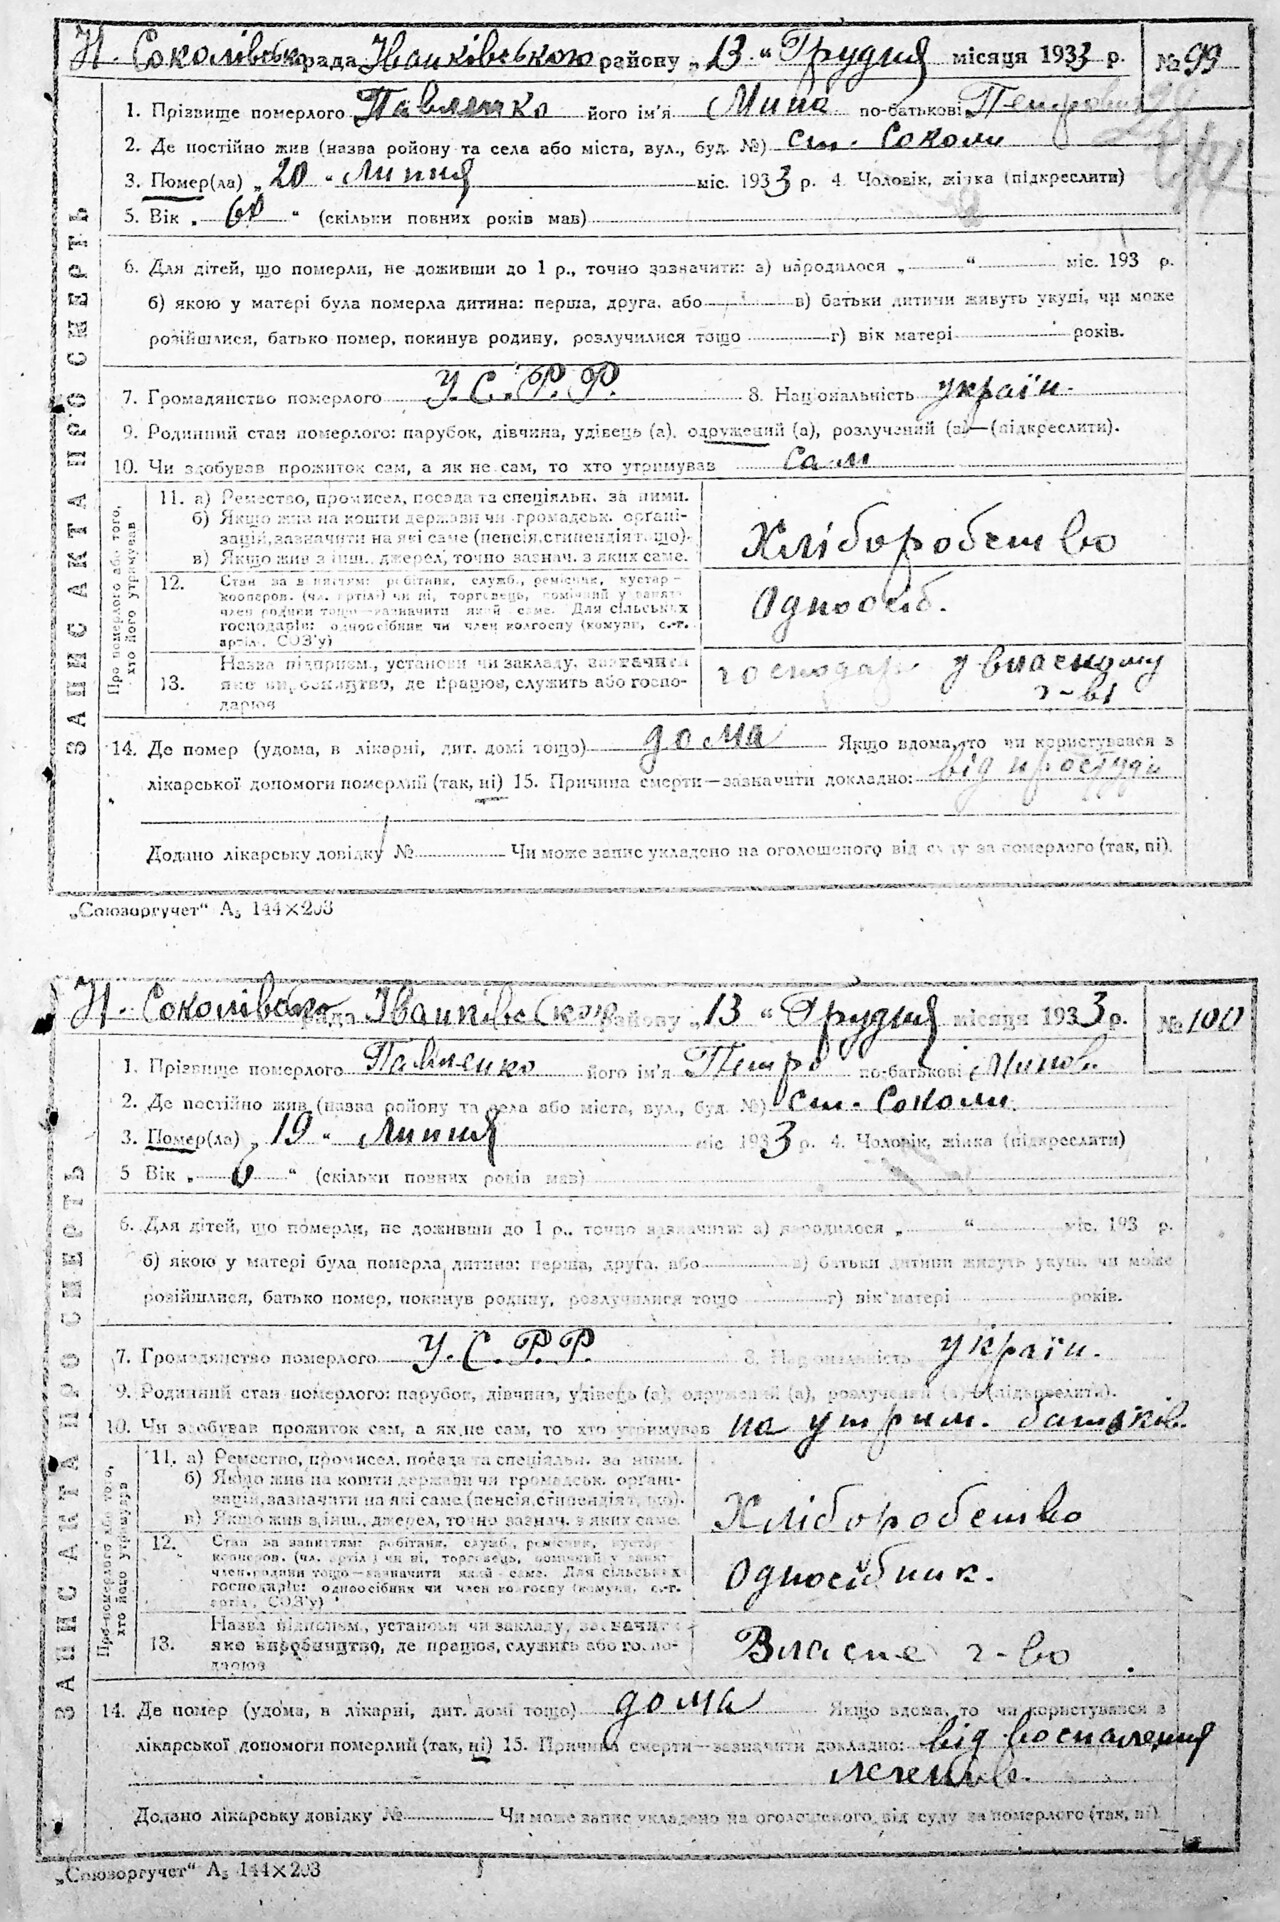 Н. Соколівська рада Іванківською району „13“ Грудня місяця 1933 р. № 99
1. Прізвище померлого Павленко його ім'я Мина по-батькові Петров
2. Де постійно жив (назва ройону та села або міста, вул., буд. №) ст. Соколи
3. Помер(ла) „20“ Липня міс. 1933 р. 4. Чоловік, жінка (підкреслити)
5. Вік „60“ (скільки повних років мав)
6. Для дітей, що померли, не доживши до 1 р., точно зазначити: а) народилося „ “ міс. 193 р.
б) якою у матері була померла дитина: перша, друга, або в) батьки дитини живуть укупі, чи може
розійшлися, батько помер, покинув родину, розлучилися тощо г) вік матері років.
7. Громадянство померлого У.С.Р.Р. 8. Національність україн.
9. Родинний стан померлого: парубок, дівчина, удівець (а), одружений (а), розлучений (а) (підкреслити).
10. Чи здобував прожиток сам, а як не сам, то хто утримував сам
ЗАПИС АКТА ПРО СМЕРТЬ
Про померлого або того,
хто його утримував
11. а) Ремество, промисел, посада та спеціяльн. за ними.
б) Якщо жив на кошти держави чи громадськ. органі-
зацій, зазначити на які саме (пенсія, стипендія т. що).
в) Якщо жив з інш. джерел, точно зазнач. з яких саме.
Хліборобство
12. Стан за заняттям: робітник, служб., ремісник, кустар-
кооперов. (чл. артілі) чи ні, торговець, помічний у занят.
член родини тощо—зазначити який саме. Для сільських
господарів: одноосібник чи член колгоспу (комуни, с.-г.
артіл., СОЗ'у)
Одноосіб.
13. Назва підприєм., установи чи закладу, зазначити
яке виробництво, де працює, служить або госпо-
дарює
господар у власному
г-ві
14. Де помер (удома, в лікарні, дит. домі тощо) дома Якщо вдома, то чи користувався з
лікарської допомоги померлий (так, ні) 15. Причина смерти—зазначити докладно: від простуди
Додано лікарську довідку № Чи може запис укладено на оголошеного від суду за померлого (так, ні).
„Союзоргучет“ А₅ 144×203
Н. Соколівська рада Іванківською району „13“ Грудня місяця 1933 р. № 100
1. Прізвище померлого Павленко його ім'я Петро по-батькові Минов.
2. Де постійно жив (назва району та села або міста, вул., буд. №) ст. Соколи.
3. Помер(ла) „19“ Липня міс 1933 р. 4. Чоловік, жінка (підкреслити)
5 Вік „6“ (скільки повних років мав)
6. Для дітей, що померли, не доживши до 1 р., точно зазначити: а) народилося „ “ міс. 193 р.
б) якою у матері була померла дитина: перша, друга, або в) батьки дитини живуть укупі, чи може
розійшлися, батько помер, покинув родину, розлучилися тощо г) вік матері років.
7. Громадянство померлого У.С.Р.Р. 8. Національність україн.
9. Родинний стан померлого: парубок, дівчина, удівець (а), одружений (а), розлучений (а) (підкреслити).
10. Чи здобував прожиток сам, а як не сам, то хто утримував на утрим. батьків.
ЗАПИС АКТА ПРО СМЕРТЬ
Про померлого або того,
хто його утримував
11. а) Ремество, промисел, посада та спеціяльн. за ними.
б) Якщо жив на кошти держави чи громадськ. органі-
зацій, зазначити на які саме (пенсія, стипендія т. що).
в) Якщо жив з інш. джерел, точно зазнач. з яких саме.
Хліборобство
12. Стан за заняттям: робітник, служб., ремісник, кустар-
кооперов. (чл. артілі) чи ні, торговець, помічний у занят.
член родини тощо—зазначити який саме. Для сільських
господарів: одноосібник чи член колгоспу (комуни, с.-г.
артіл., СОЗ'у)
Одноосібник.
13. Назва підприєм., установи чи закладу, зазначити
яке виробництво, де працює, служить або госпо-
дарює
Власне г-во
14. Де помер (удома, в лікарні, дит. домі тощо) дома Якщо вдома, то чи користувався з
лікарської допомоги померлий (так, ні) 15. Причина смерти—зазначити докладно: від воспалення
легенів.
Додано лікарську довідку № Чи може запис укладено на оголошеного від суду за померлого (так, ні)
„Союзоргучет“ А₅ 144×203